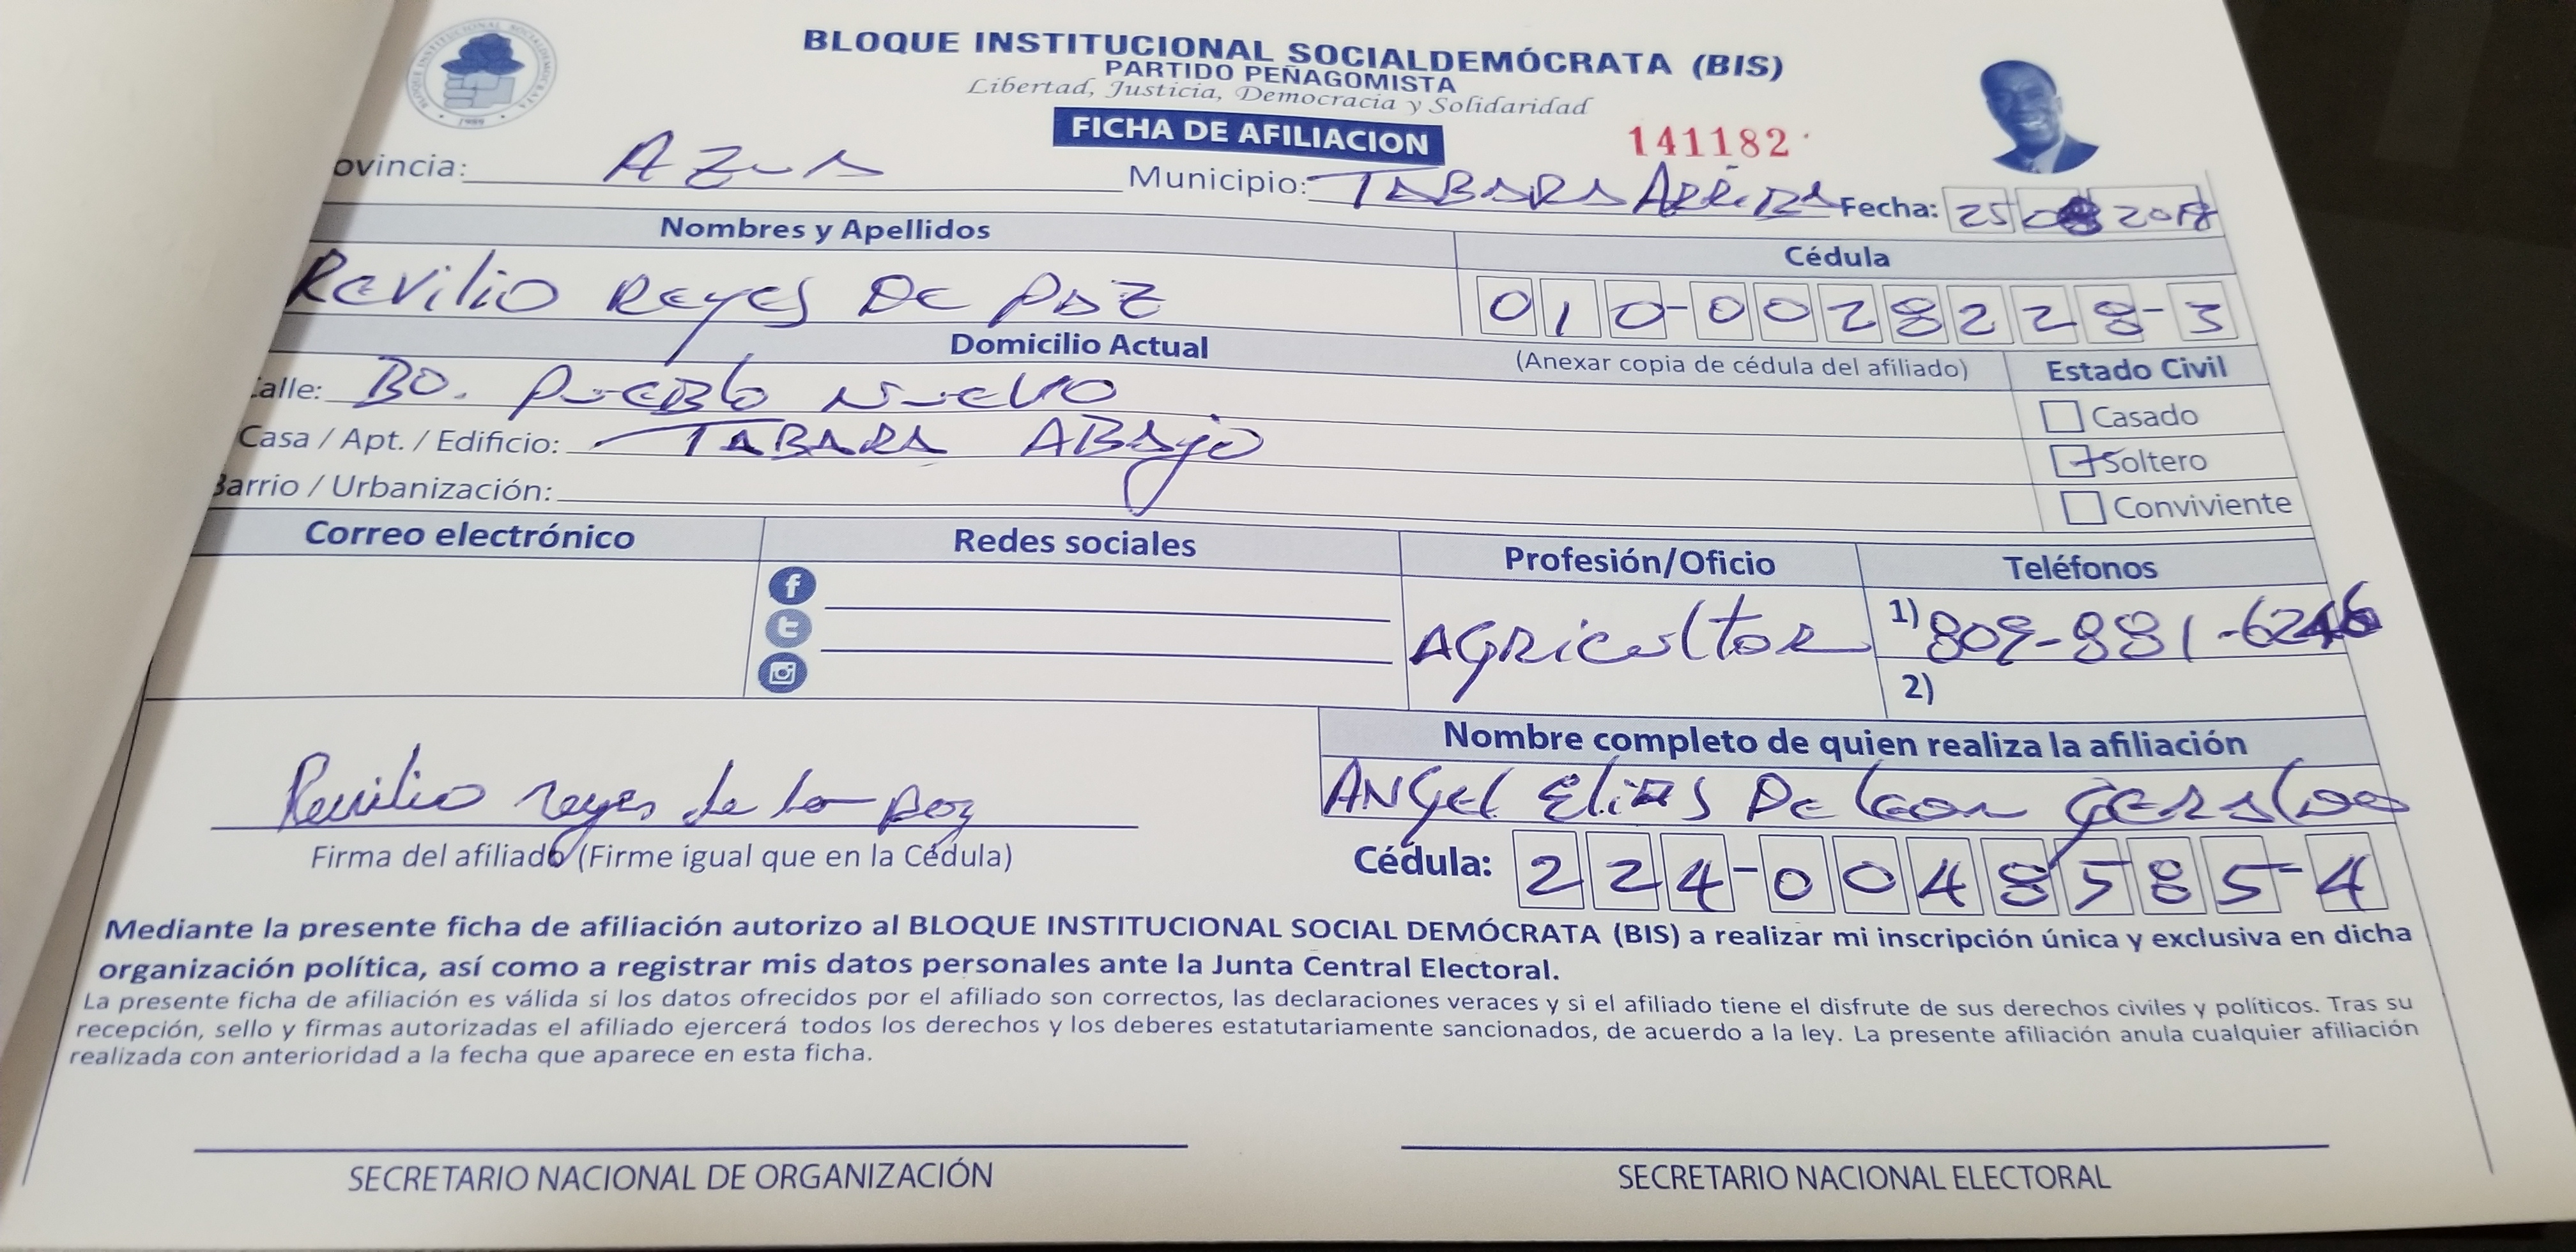 BLOQUE INSTITUCIONAL SOCIALDEMÓCRATA (BIS)
PARTIDO PEÑAGOMISTA
Libertad, Justicia, Democracia y Solidaridad
FICHA DE AFILIACION
141182
ovincia: AZUA Municipio: TABARA ARRIBA Fecha: 25 2018
Nombres y Apellidos Cédula
Revilio Reyes De PAZ 010-0028228-3
Domicilio Actual (Anexar copia de cédula del afiliado) Estado Civil
alle: BO. Pueblo Nuevo
Casado
Casa / Apt. / Edificio: TABARA ABAjo
Soltero
Barrio / Urbanización:
Conviviente
Correo electrónico Redes sociales Profesión/Oficio Teléfonos
AGRicultor 1) 809-881-6246
2)
Nombre completo de quien realiza la afiliación
Revilio reyes de la paz ANGel EliAS De leon
Firma del afiliado (Firme igual que en la Cédula) Cédula: 224-0048585-4
Mediante la presente ficha de afiliación autorizo al BLOQUE INSTITUCIONAL SOCIAL DEMÓCRATA (BIS) a realizar mi inscripción única y exclusiva en dicha
organización política, así como a registrar mis datos personales ante la Junta Central Electoral.
La presente ficha de afiliación es válida si los datos ofrecidos por el afiliado son correctos, las declaraciones veraces y si el afiliado tiene el disfrute de sus derechos civiles y políticos. Tras su
recepción, sello y firmas autorizadas el afiliado ejercerá todos los derechos y los deberes estatutariamente sancionados, de acuerdo a la ley. La presente afiliación anula cualquier afiliación
realizada con anterioridad a la fecha que aparece en esta ficha.
SECRETARIO NACIONAL DE ORGANIZACIÓN SECRETARIO NACIONAL ELECTORAL